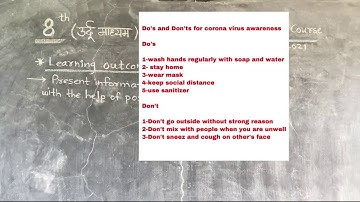 8th (उर्दू माध्यम) Course
2021
* Learning outcom
→ Present informa
with the help of po
Do's and Dont's for corona virus awareness
Do's
1-wash hands regularly with soap and water
2- stay home
3-wear mask
4-keep social distance
5-use sanitizer
Don't
1-Don't go outside without strong reason
2-Don't mix with people when you are unwell
3-Don't sneez and cough on other's face